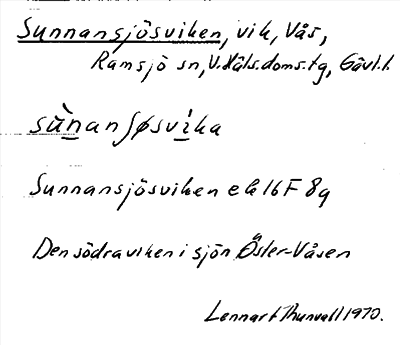 Sunnansjösviken, vik, Vås,
Ramsjö sn, V. Häls. doms. tg, Gävl. l.
sὰnanʃøsvika
Sunnansjösviken ek 16 F 8g
Den södra viken i sjön Öster-Våsen
Lennart Thunvall 1970.